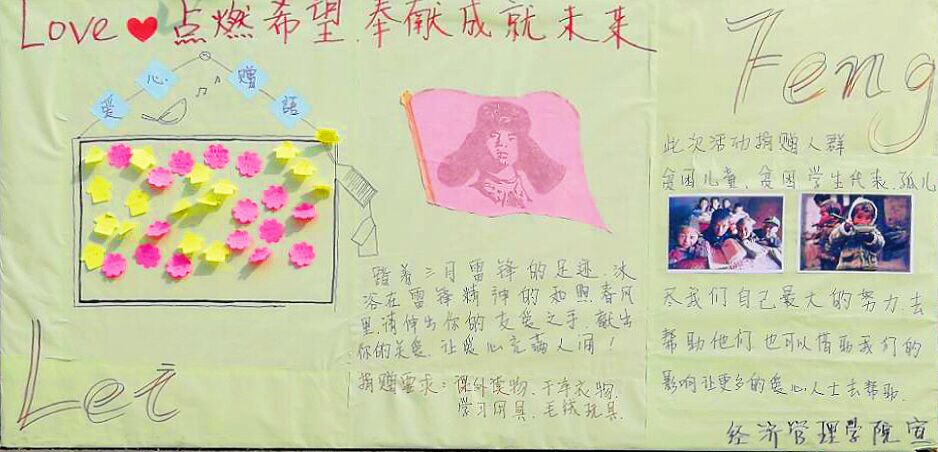 Love 点燃希望 奉献成就未来
爱心赠语
踏着三月雷锋的足迹.沐
浴在雷锋精神的和煦春风
里.请伸出你的友爱之手.献出
你的关爱.让爱心充满人间!
捐赠要求:课外读物.干净衣物.
学习用具.毛绒玩具.
Feng
此次活动捐赠人群
贫困儿童.贫困学生代表.孤儿
尽我们自己最大的努力.去
帮助他们也可以借助我们的
影响让更多的爱心人士去帮助.
经济管理学院宣
Lei